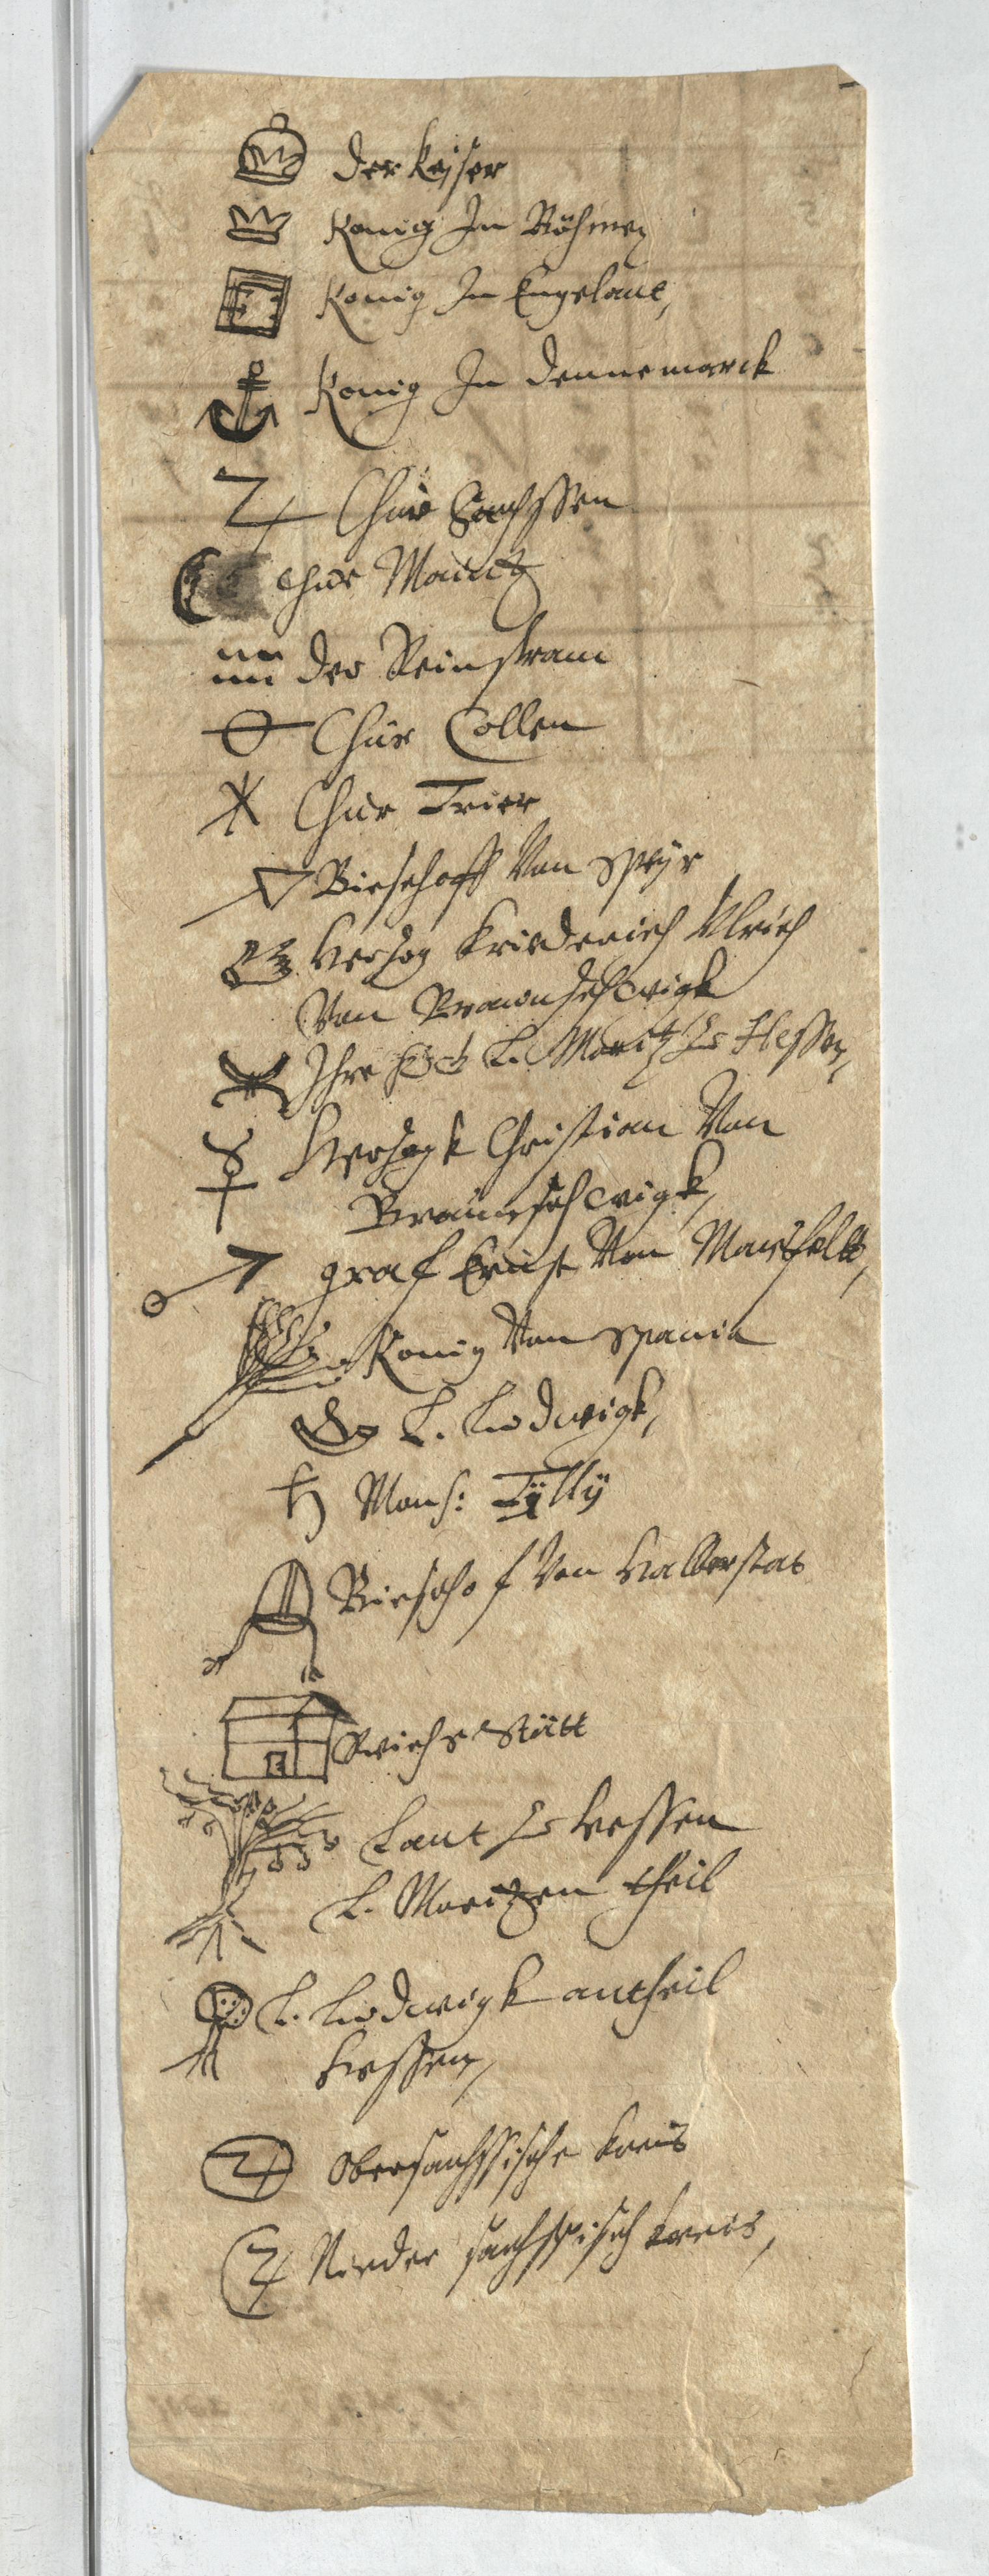 der Keÿser
Konig In Böhmen
Konig In Engelant,
Konig In Dennemarck
Chür Sachssen
Chür Maintz
der Reinstram
Chür Collen
Chür Trier
Bieschoff Von Speÿr
Hertzog Friederich Ulrich
Von Braunschwigk
Ihre L. Moritz zu Hessen,
Hertzogk Christian Von
Braunschwigk,
graf Ernst Von Mansfeltt,
Konig Von Spania
L. Ludwigk,
Mons: Tÿllÿ
Bieschof Von Halberstat
Reichs Stätt
Lant zu Hessen
L. Moritzen theil
L. Ludwigk antheil
Hessen,
Obersachssische Kreis
Nieder sachssisch Kreis,